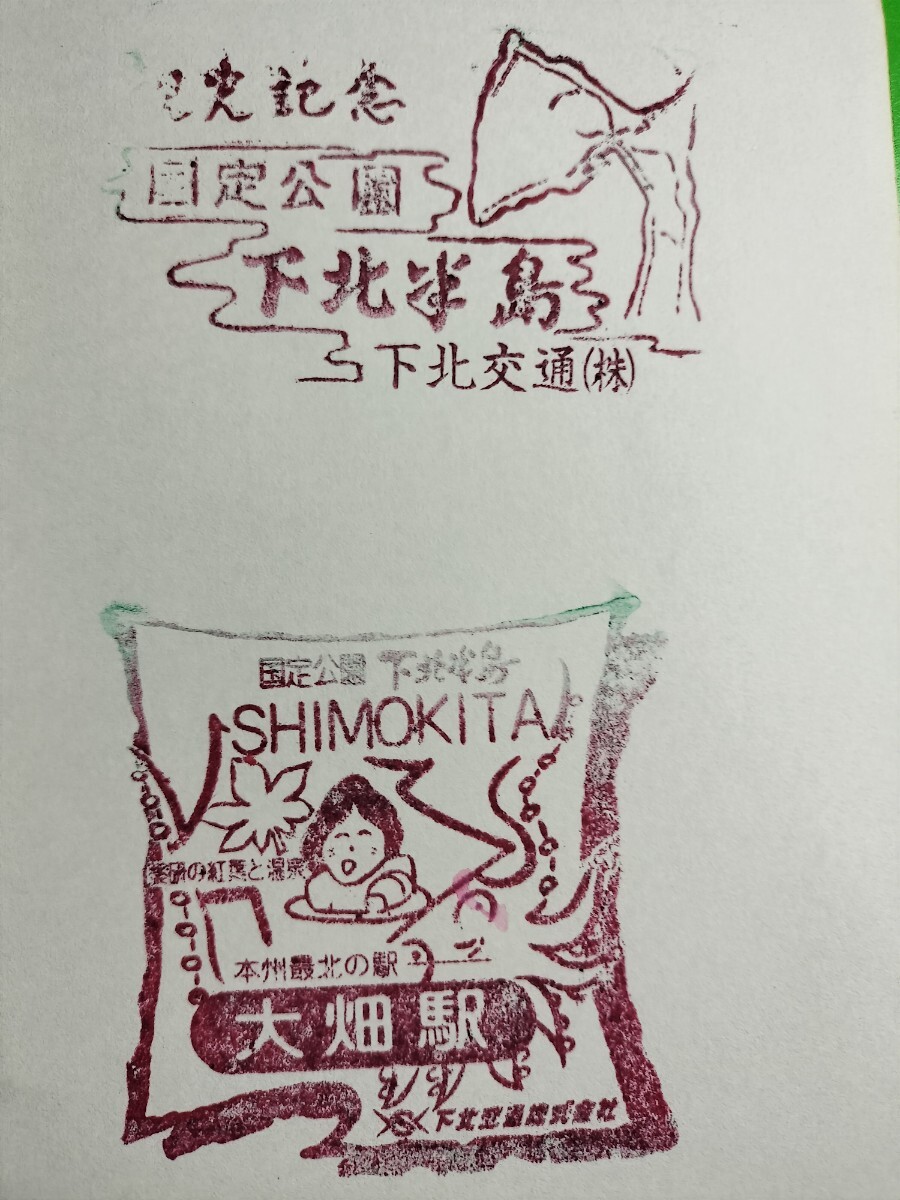 観光記念
国定公園
下北半島
下北交通㈱
国定公園 下北半島
SHIMOKITA
薬研の紅葉と温泉
本州最北の駅
大畑駅
下北交通株式会社